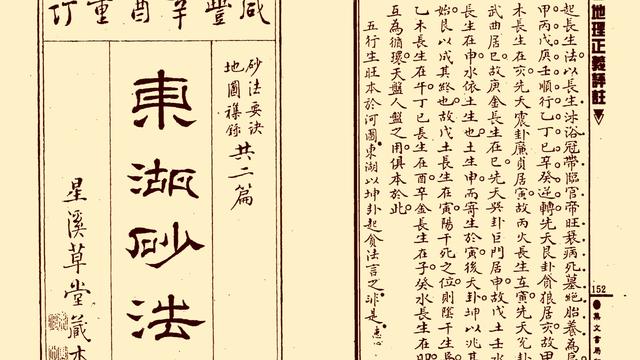 地理正義評註
152
集文書局
起長生法以長生沐浴冠帶臨官帝旺衰病死墓絕胎養為
甲丙戊庚壬順行乙丁己辛癸逆轉先天艮卦貪狼居亥故甲
木長生在亥先天震卦廉貞居寅故丙火長生在寅先天兌卦
武曲居巳故庚金長生在巳先天巽卦巨門居申故土壬水
長生在申水依土生也土生申而寄生於寅後天卦坤以兆其
始艮以成其終也故戊土長生在寅陽干死之位則陰干生焉
乙木長生在午丁己長生在酉辛金長生在子癸水長生在卯
互為循環天盤人盤之用俱本於此
五行生旺本於河圖東湖以坤卦起貪法言之非是
咸豐辛酉重訂
砂法要訣
地圖雜錄
共二篇
東湖砂法
星溪草堂藏本